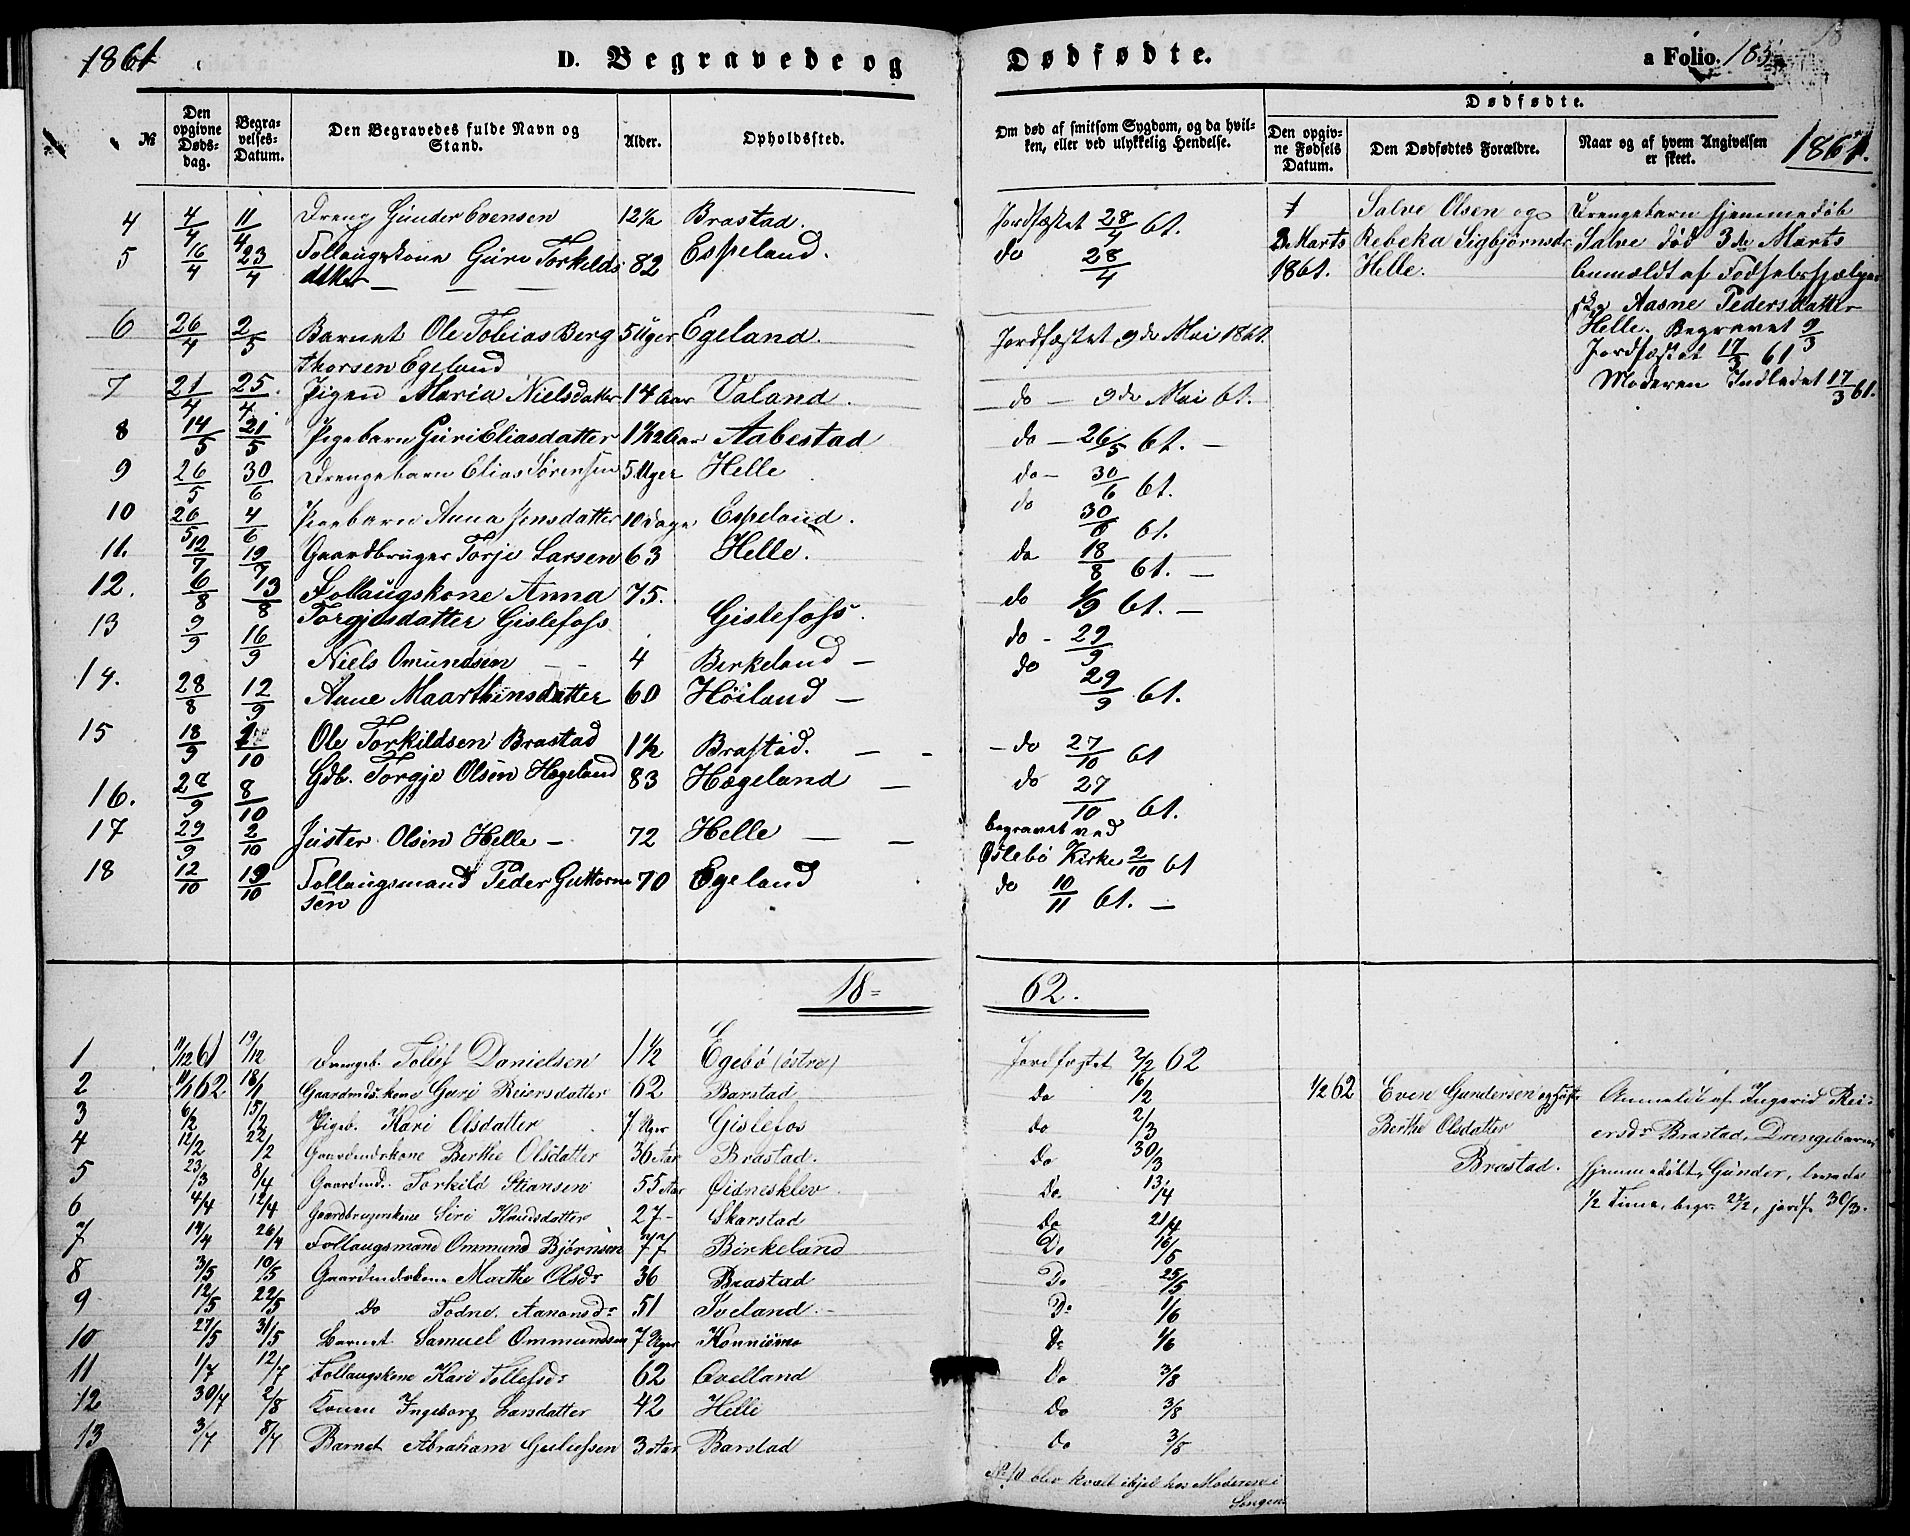 1861
D. Begravede og Dødfødte.
a Folio. 183
1861.
№
Den opgivne Døds-dag.
Begra-velses-Datum.
Den Begravedes fulde Navn og Stand.
Alder.
Opholdssted.
Om død af smitsom Sygdom, og da hvil-ken, eller ved ulykkelig Hendelse.
Dødfødte.
Den opgiv-ne Fødsels Datum.
Den Dødfødtes Forældre.
Naar og af hvem Angivelsen er skeet.
4 4/4 11/4 Dreng Gunder Evensen 12½ Brastad. Jordfæstet 28/4 61.
5 16/4 23/4 Follaugskone Guri Torkilds 82 Espeland. do 28/4
datter — — —
6 26/4 2/5 Barnet Ole Tobias Berg 5 Uger Egeland. Jordfæstet 9de Mai 1861.
thorsen Egeland
7 21/4 25/4 Pigen Maria Nielsdatter 14 Aar Valand. do — 9de Mai 61.
8 14/5 21/5 Pigebarn Guri Eliasdatter 1½ Aar Aabestad do — 26/5 61. —
9 26/5 30/6 Drengebarn Elias Sørensen 5 Uger Helle do — 30/6 61.
10 26/5 4/6 Pigebarn Anna Jensdatter 10 Dage Espeland. do 30/6 61.
11. 12/7 19/7 Gaardbruger Torje Larsen 63 Helle. do 18/8 61. —
12. 6/8 13/8 Follaugskone Anna 75. do 1/9 61. —
Torgjusdatter Gislefoss Gislefoss.
13 9/9 16/9 Niels Omundsen — — 4 Birkeland — do — 29/9
14. 28/8 12/9 Anne Maarthinsdatter 60 Höiland — do 29/9 61.
15 18/9 /10 Ole Torkildsen Brastad 1½ Brastad. — — do 27/10 61
16. 28/9 8/10 Gdb. Torgje Olsen Hægeland 83 Hægeland — do 27/10 61.
17 29/9 2/10 Juster Olsen Helle — 72 Helle — — begravet ved
Øslebö Kirke 2/10 61
18 12/10 19/10 Follaugsmand Peder Guttorm 70 Egeland do 10/11 61. —
sen
2 Marts
1861.
Salve Olsen og
Rebeka Sigbjørnsdr
Helle.
Drengebarn hjemmedöb
Salve död 3de Marts
Anmældt af Födselshjælper
ske Aasne Pedersdatter
Helle. Begravet 9/3
Jordfæstet 17/3 61
Moderen Indledet 17/3 61.
18= 62.
1 11/12 61 19/12 Drengeb. Tollef Danielsen 1½ Egebö (östre) Jordfæstet 2/2 62
2 11/1 62 18/1 Gaardmdskone Guri Reiersdatter 62 Barstad Do 16/2
3 6/2 15/2 Pigeb. Kari Olsdatter 7 Uger Gislefos do 2/3
4 12/2 22/2 Gaardmdskone Berthe Olsdatter 36 Aar Brastad. Do 30/3
5 23/3 8/4 Gaardmd. Torkild Stiansen 55 Aar Øidnesklev Do. 13/4
6 4/4 12/4 Gaardbrugerskone Siri Knudsdatter 27 - Skarstad Do 21/4
7 14/4 26/4 Follaugsmand Ommund Bjørnsen 77 Birkeland Do 16/5
8 3/5 10/5 Gaardmdskone Marthe Olsdr 36 Brastad Do 25/5
9 12/5 22/5 Do Todne Aanonsdr 51 Iveland. - Do 1/6
10 27/5 31/5 Barnet Samuel Ommundsen 7 Uger Konnismo Do 1/6
11 1/7 12/7 Follaugskone Kari Tollefsdr 62 Qvelland Do 3/8
12 30/7 2/8 Konen Ingeborg Larsdatter 42 Helle Do 3/8
13 3/7 8/7 Barnet Abraham Gulufssen 3 Aar Barstad Do 3/8
No 10 blev kvalt ihjel hos Moderen i
Sengen
1/2 62
Even Gundersen og Hust.
Berthe Olsdatter
Brastad.
Anmeldt af Ingerid Rei-
ersdr Brastad, Drengebarnet
hjemmedöbt, Gunder, levede
½ Time, begr. 22/2, jordf. 30/3.